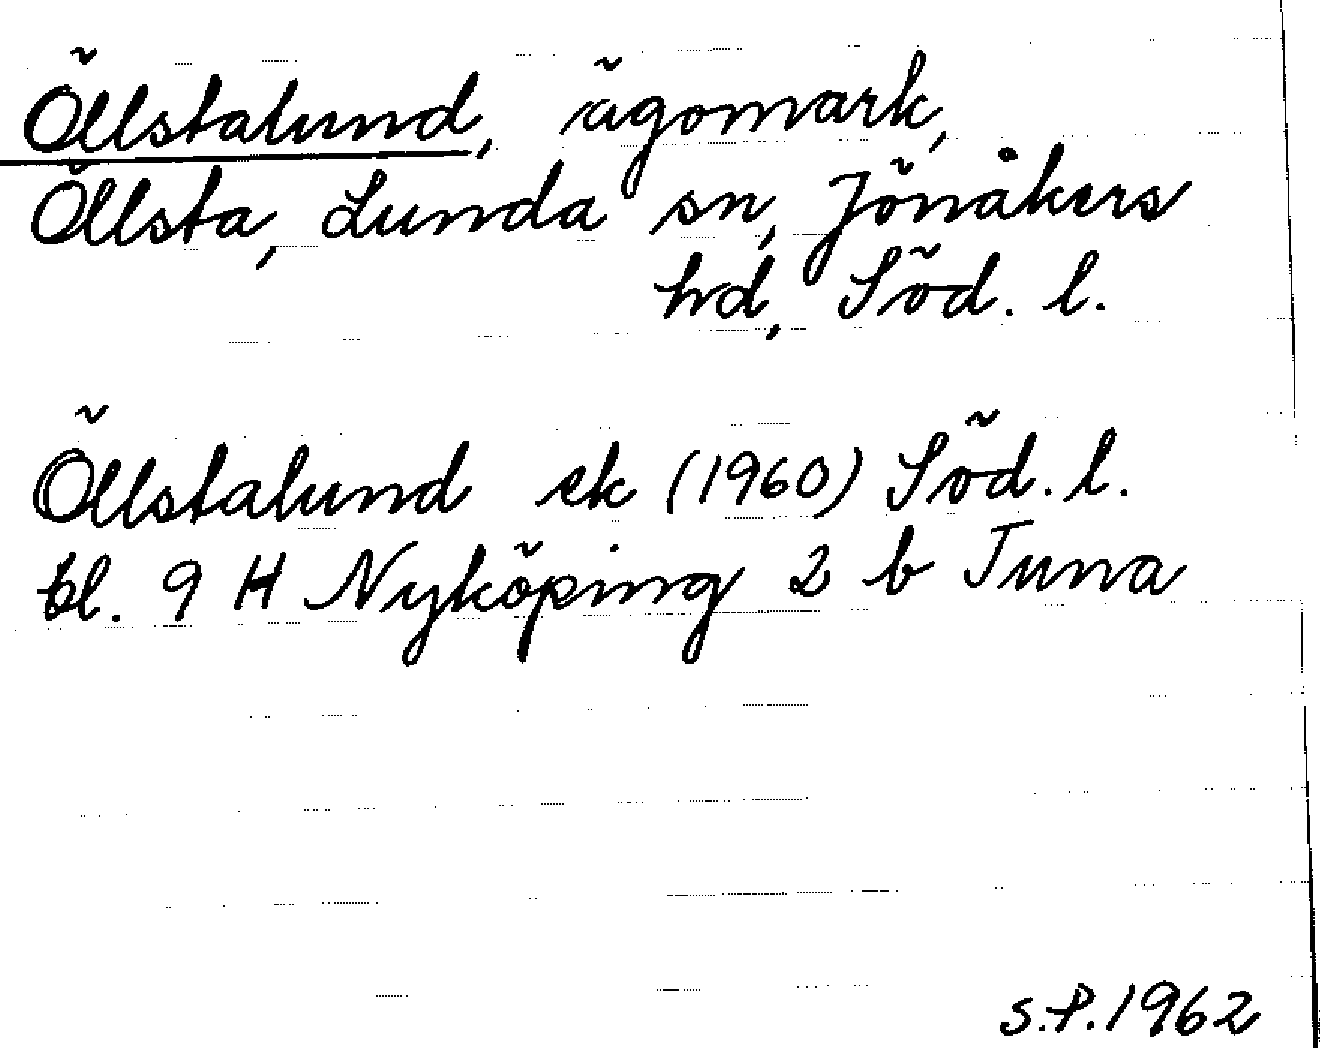 Öllstalund, ägomark,
Öllsta, Lunda sn, Jönåkers
hd, Söd. l.
Öllstalund ek (1960) Söd. l.
bl. 9 H Nyköping 2 b Tuna
S.P. 1962